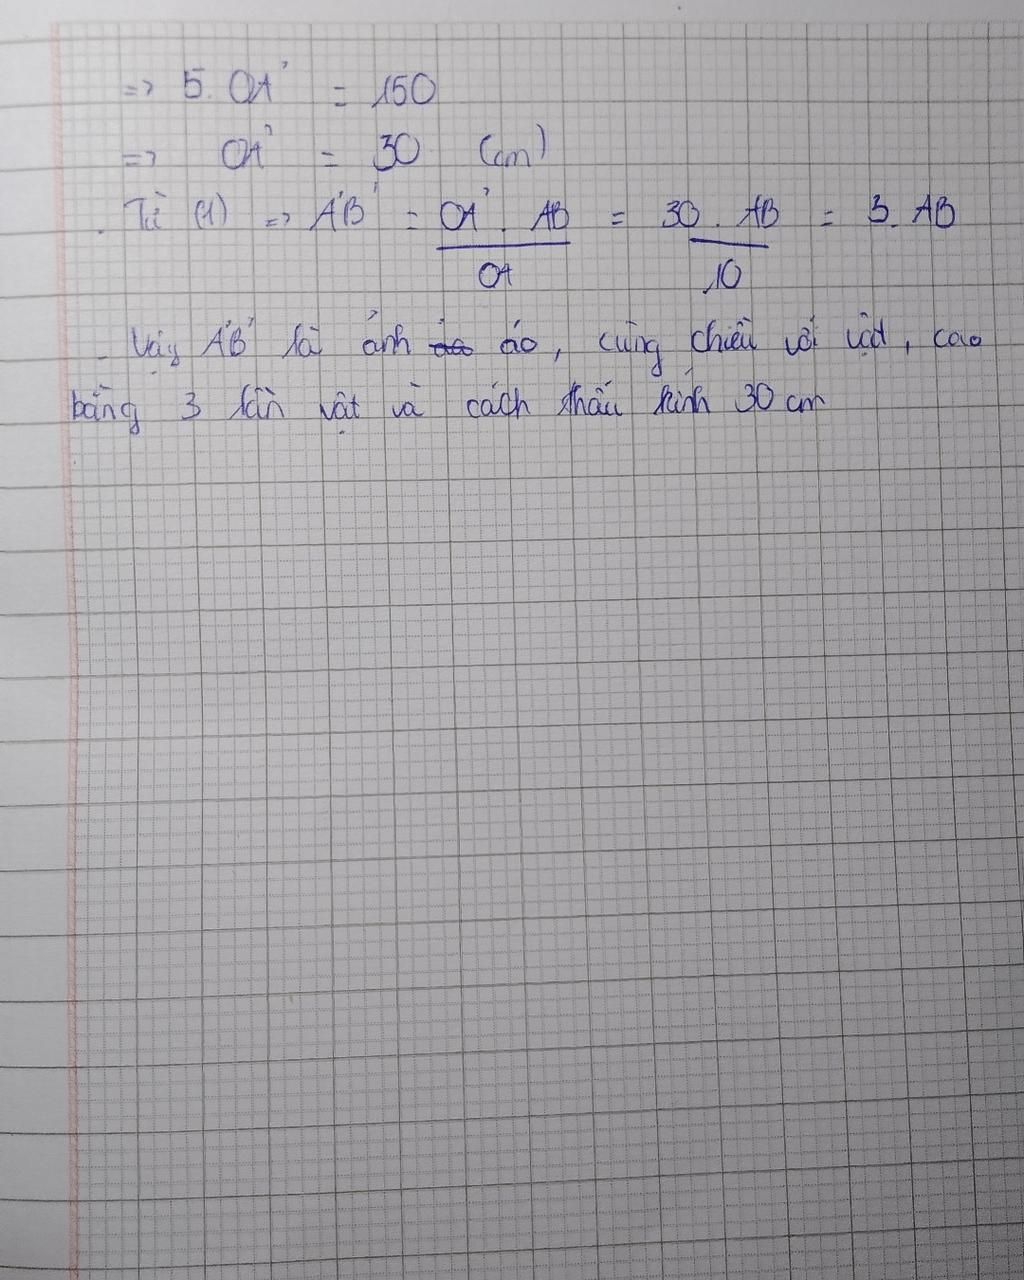 => 5. OA' = 150
=> OA' = 30 (cm)
. Từ (1) => A'B' = OA' . AB / OA = 30 . AB / 10 = 3. AB
- Vậy A'B' là ảnh ảo, cùng chiều với vật, cao
bằng 3 lần vật và cách thấu kính 30 cm